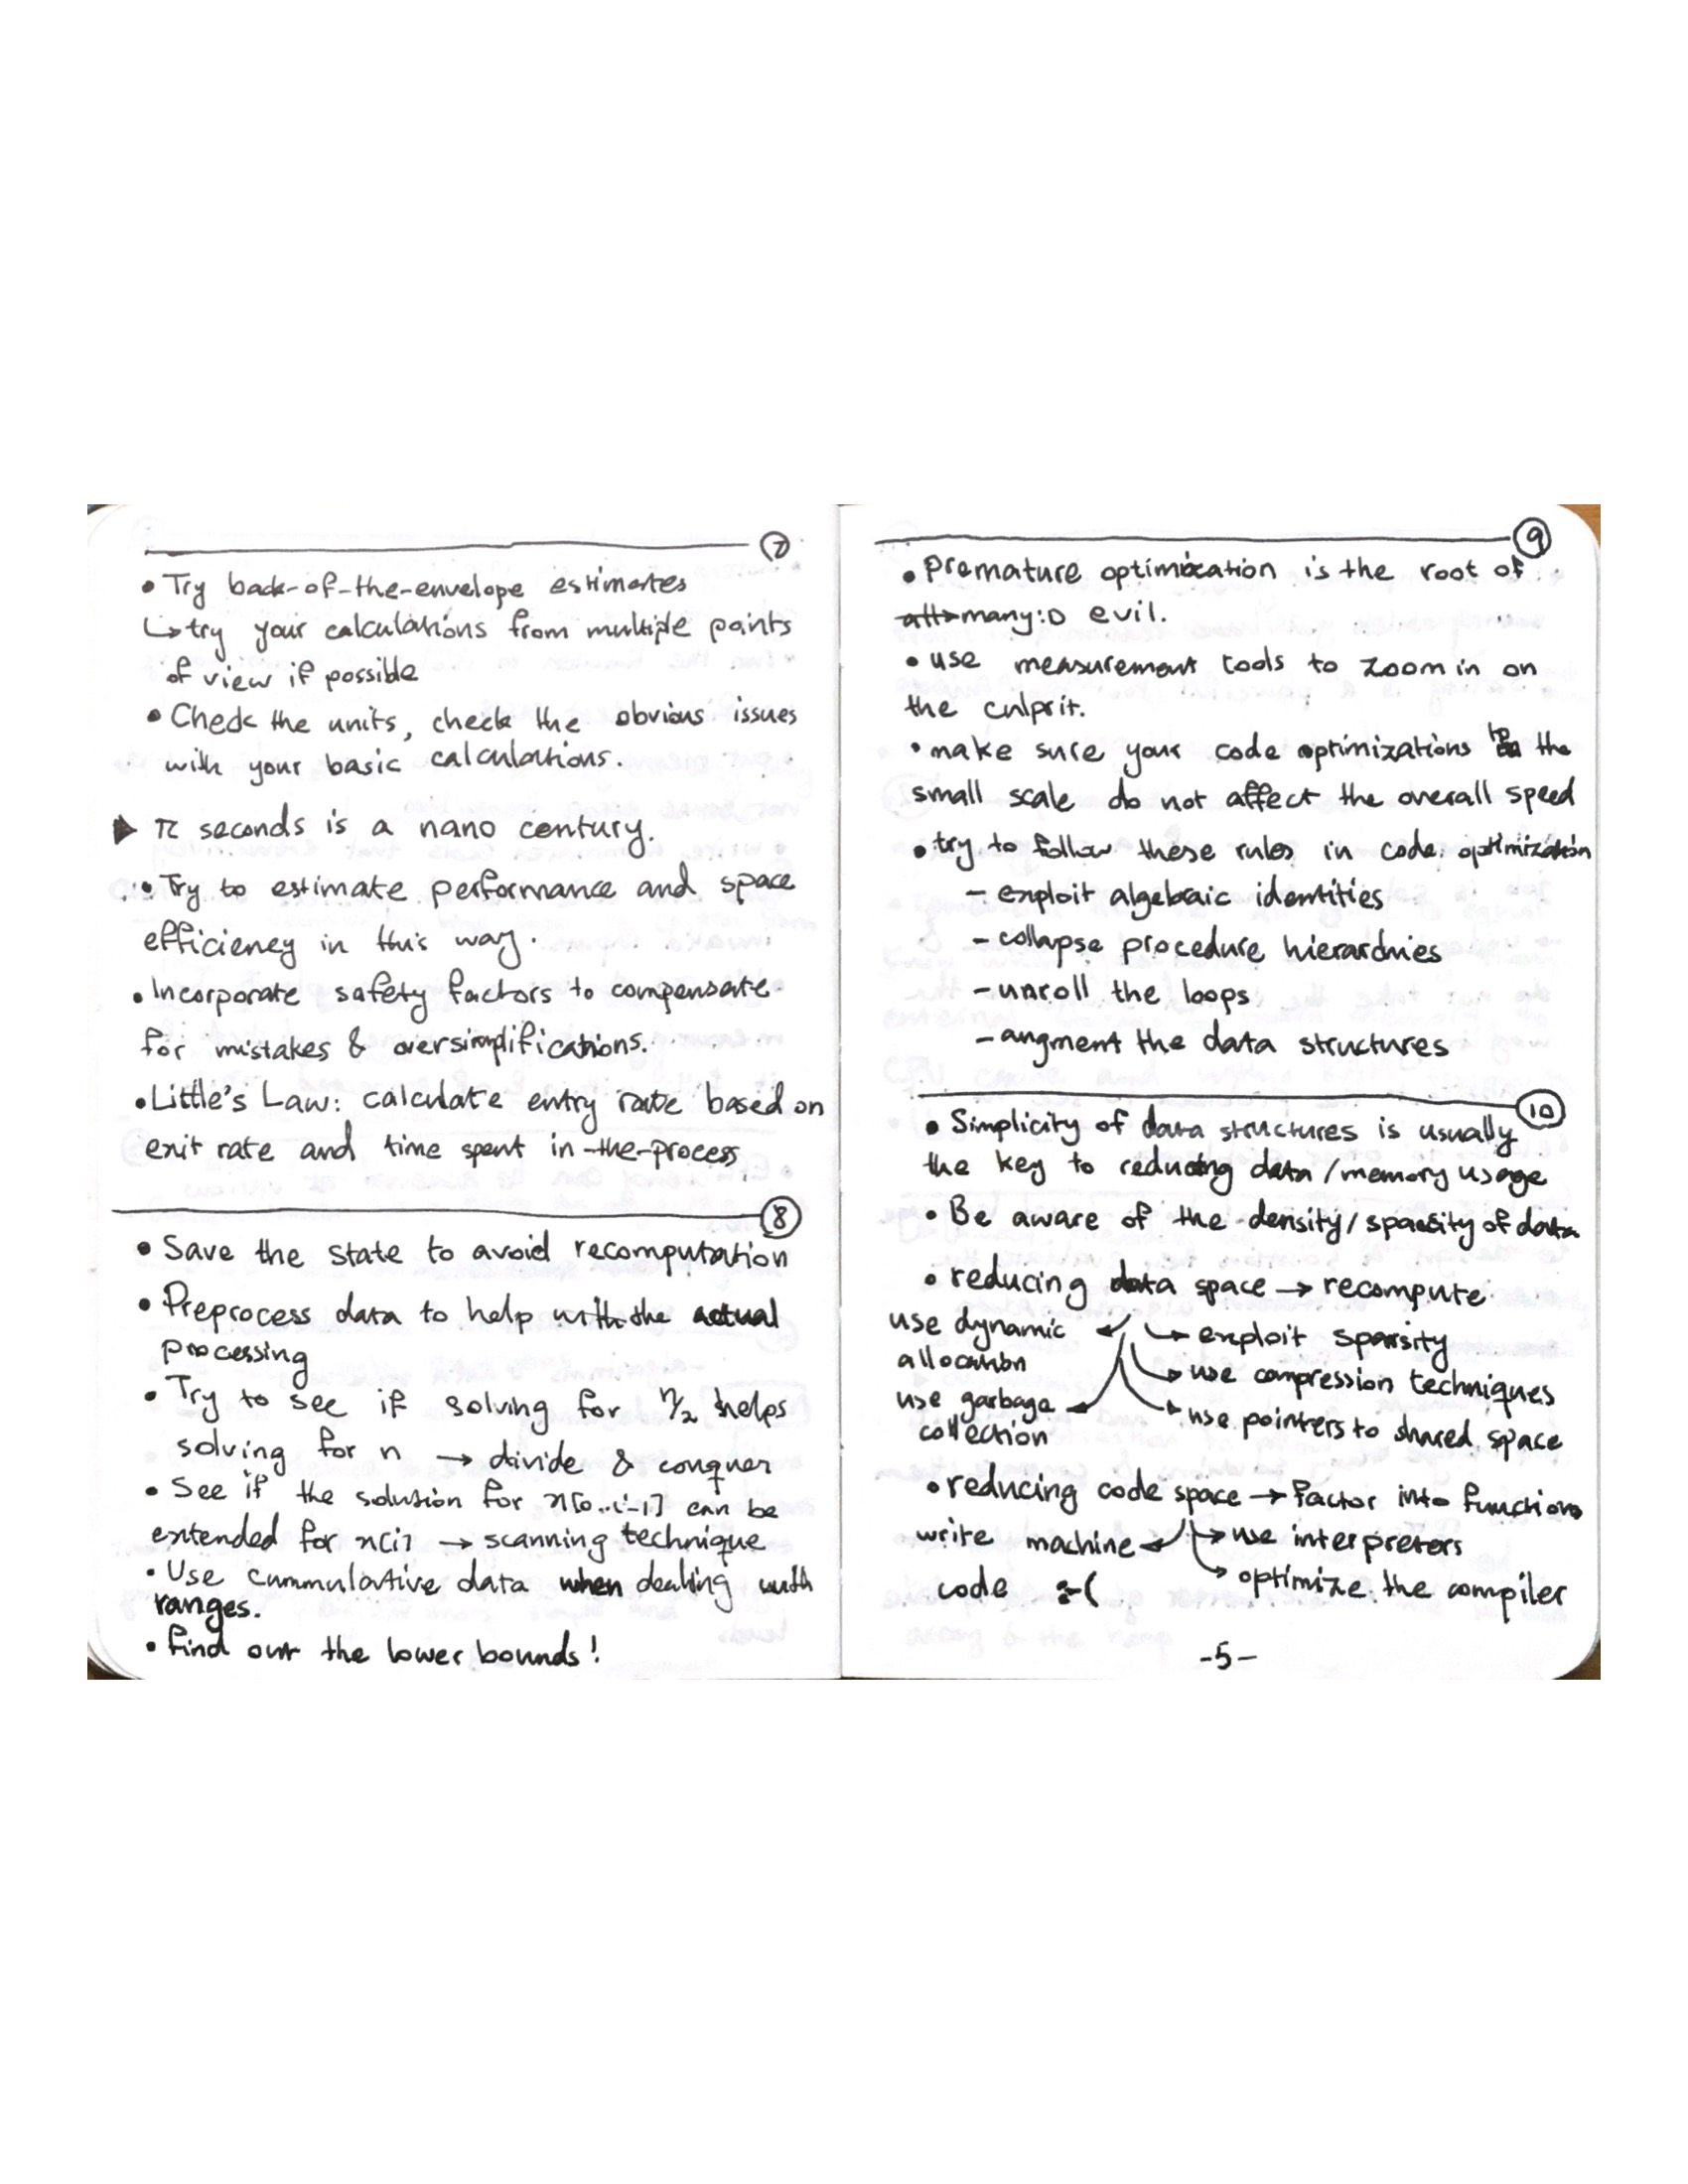 ⑦
• Try back-of-the-envelope estimates
↳ try your calculations from multiple points
of view if possible
• Check the units, check the obvious issues
with your basic calculations.
▶ π seconds is a nano century.
• Try to estimate performance and space
efficieney in this way.
• Incorporate safety factors to compensate
for mistakes & oversimplifications.
• Little's Law: calculate entry rate based on
exit rate and time spent in-the-process
⑧
• Save the state to avoid recomputation
• Preprocess data to help with the actual
processing
• Try to see if solving for n/2 helps
solving for n → divide & conquer
• See if the solution for x[0..i-1] can be
extended for x[i] → scanning technique
• Use cummulative data when dealing with
ranges.
• find out the lower bounds!
⑨
• Premature optimization is the root of
all→many:D evil.
• use measurement tools to zoom in on
the culprit.
• make sure your code optimizations to the
small scale do not affect the overall speed
• try to follow these rules in code optimization
- exploit algebraic identities
- collapse procedure hierarchies
- unroll the loops
- augment the data structures
⑩
• Simplicity of data structures is usually
the key to reducing data/memory usage
• Be aware of the density/sparsity of data
• reducing data space → recompute
use dynamic
allocation
→ exploit sparsity
→ use compression techniques
use garbage
collection
→ use pointers to shared space
• reducing code space → factor into functions
write machine
code :-(
→ use interpreters
→ optimize the compiler
-5-